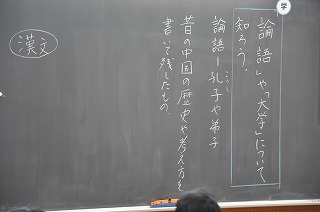 学
「論語」や「大学」について
知ろう。
論語ー孔子や弟子
こうし
昔の中国の歴史や考え方を
書いて残したもの。
漢文